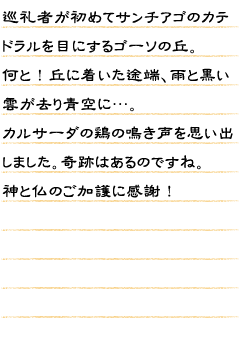 巡礼者が初めてサンチアゴのカテ
ドラルを目にするゴーソの丘。
何と！丘に着いた途端、雨と黒い
雲が去り青空に…。
カルサーダの鶏の鳴き声を思い出
しました。奇跡はあるのですね。
神と仏のご加護に感謝！